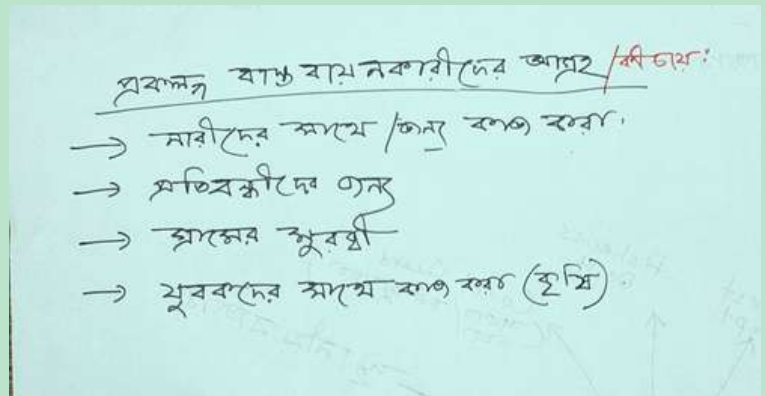 প্রকল্প বাস্তবায়নকারীদের আগ্রহ/কী চায়:
→ নারীদের সাথে/জন্য কাজ করা।
→ প্রতিবন্ধীদের জন্য
→ গ্রামের
→ যুবকদের সাথে কাজ করা (কৃষি)।